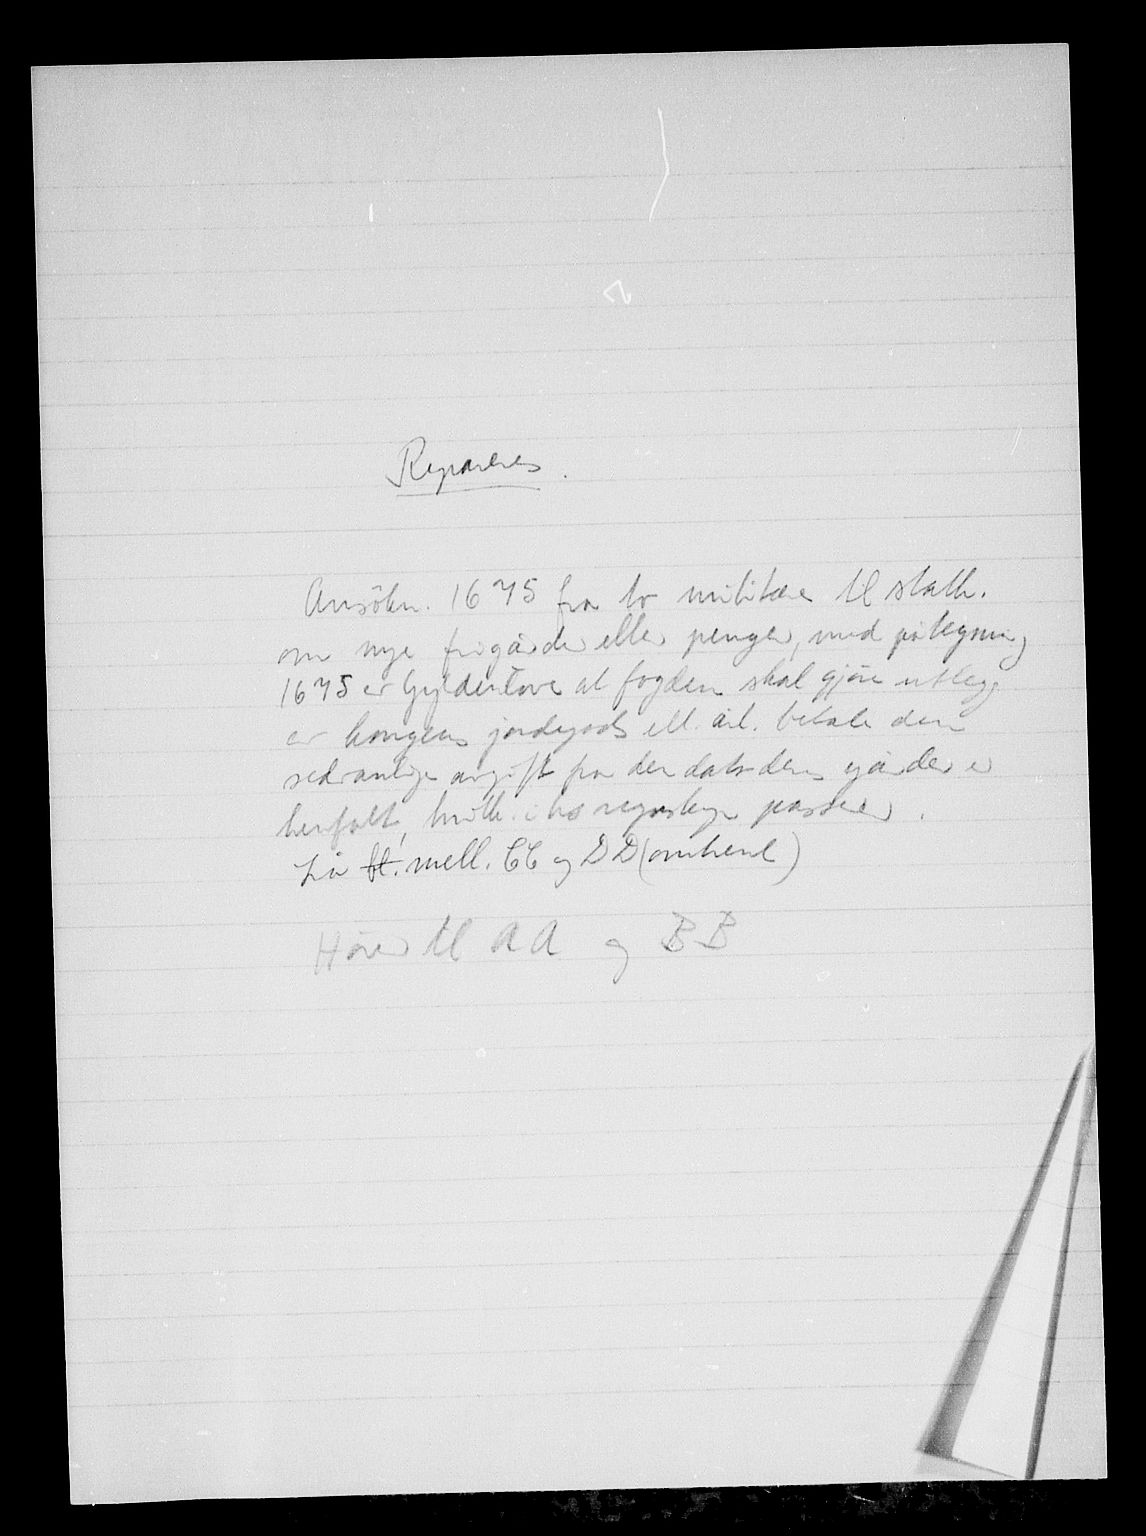 Repareres.
Ansökn. 1675 fra to militære til stath.
om nye frigårder eller penger, med påtegning
1675 av Gyldenløve at fogden skal gjøre utlegg
av kongens jordegods ell. årl. betale den
sedvanlige avgift fra den dato deres gårder er
henfalt, hvilk. i hs regnskap passerer.
Lå bl. mell. CC og DD (omtrent)
Hører til AA og BB